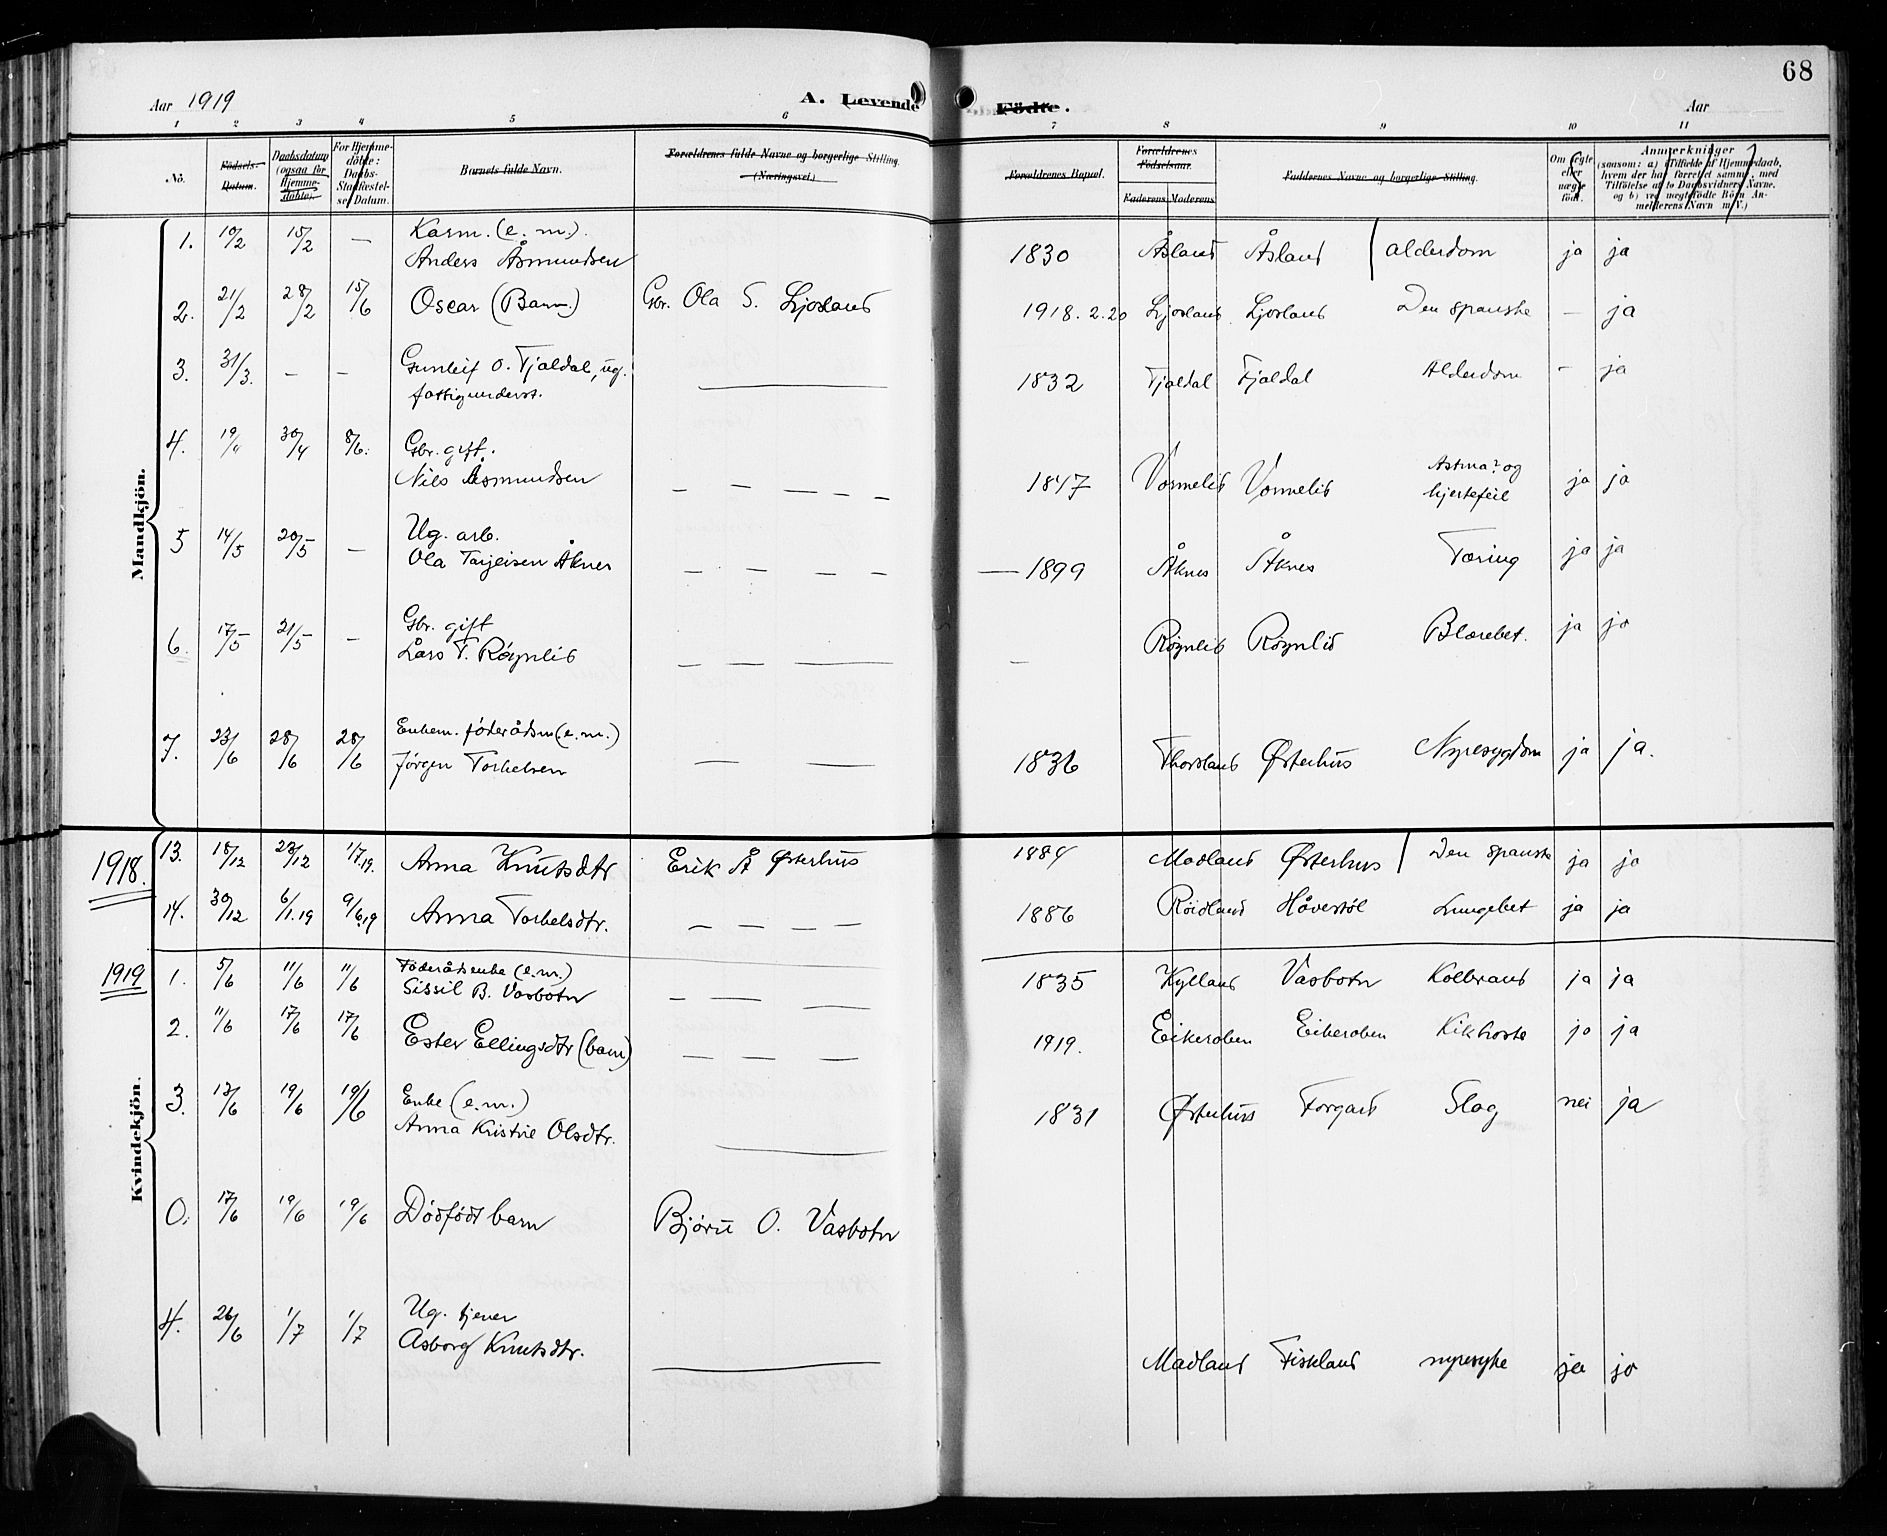 68
Aar 1919 A. Levende Födte. Aar
1 2 3 4 5 6 7 8 9 10 11
No. Födsels-Datum. Daabsdatum (ogsaa for Hjemme-døbte). For Hjemme-döbte: Daabs-Stadfæstel-ses Datum. Barnets fulde Navn. Forældrenes fulde Navne og borgerlige Stilling (Næringsvei.) Forældrenes Bopæl. Forældrenes Födselsaar. Faderens Moderens Faddernes Navne og borgerlige Stilling. Om ægte eller uægte född. Anmærkninger
(saasom: a) Tilfælde af Hjemmedaab, hvem der har forrettet samme, med Tilföielse af to Daabsvidners Navne, og b) ved uægtefödte Börn Anmelderens Navn m. V.)
Mandkjön.
1. 10/2 15/2 — Kaarm. (e. m.). Anders Åsmundsen 1830 Åsland Åsland alderdom ja ja
2. 21/2 28/2 15/6 Oscar (Barn.) Gbr. Ola S. Ljosland 1918. 2.20 Ljosland Ljosland Den spanske — ja
3. 31/3. — — Gunleif O. Fjaldal, ug. fattigunderst. — 1832 Fjaldal Fjaldal Alderdom — ja
4. 19/4 30/4 8/6. Gbr. gift. Nils Åsmundsen — — — — — 1847 Vormelid Vormelid Astma? og hjertefeil ja ja
5 14/5 20/5 — Ug. arb. Ola Tarjeisen Åknes — — — — — 1899 Åknes Åknes Tæring ja ja
6. 17/5 21/5 — Gbr. gift Lars T. Røynlid — — — — Røynlid Røynlid Blærebet. ja ja
7. 23/6 28/6 28/6 Enkem. föderådsm (e. m.) Jörgen Torkelsen — — 1836 Thorsland Østerhus Nyresygdom ja ja.
1918.
13. 18/12 28/12 1/7.19. Anna Knutsdtr Erik Å Østerhus 1884 Madland Østerhus Den spanske ja ja
14. 30/12 6/1.19 9/6.19 Anna Torkelsdtr. — — — — 1886 Röidland Håverstöl Lungebet ja ja
1919
Kvindekjön.
1. 5/6 11/6 11/6 Föderådsenke (e. m.) Sissil B. Vasbotn — — — 1835 Kylland Vasbotn Kolbrand ja ja
2. 11/6 17/6 17/6 Ester Ellingsdtr (barn) — — — — 1919. Eikeråben Eikeråben Kikhoste ja ja
3. 13/6 19/6 19/6 Enke (e. m.) Anna Kristine Olsdtr. — 1831 Østerhus Forgard Slag nei ja
0. 17/6 19/6 19/6 Dödfödt barn Bjørn O. Vasbotn
4. 26/6 1/7 1/7 Ug. tjener Asborg Knutsdtr. — Madland Fiskland nyresyke ja ja